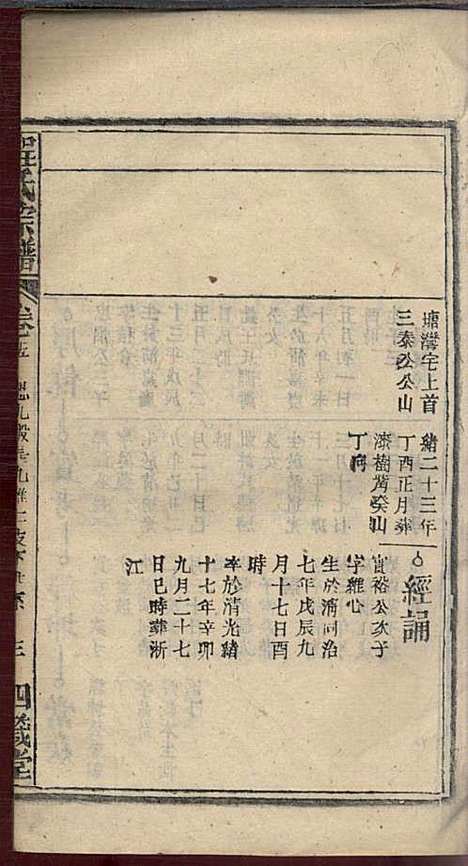 塘灣宅上首
三泰公公山
緒二十三年
丁酉正月葬
漆樹灣癸山
丁向
經誦
實裕公次子
字雜心
生於清同治
七年戊辰九
月十七日酉
時
卒於清光緒
十七年辛卯
九月二十七
日巳時葬浙
江
氏宗譜
卷五
四箴堂